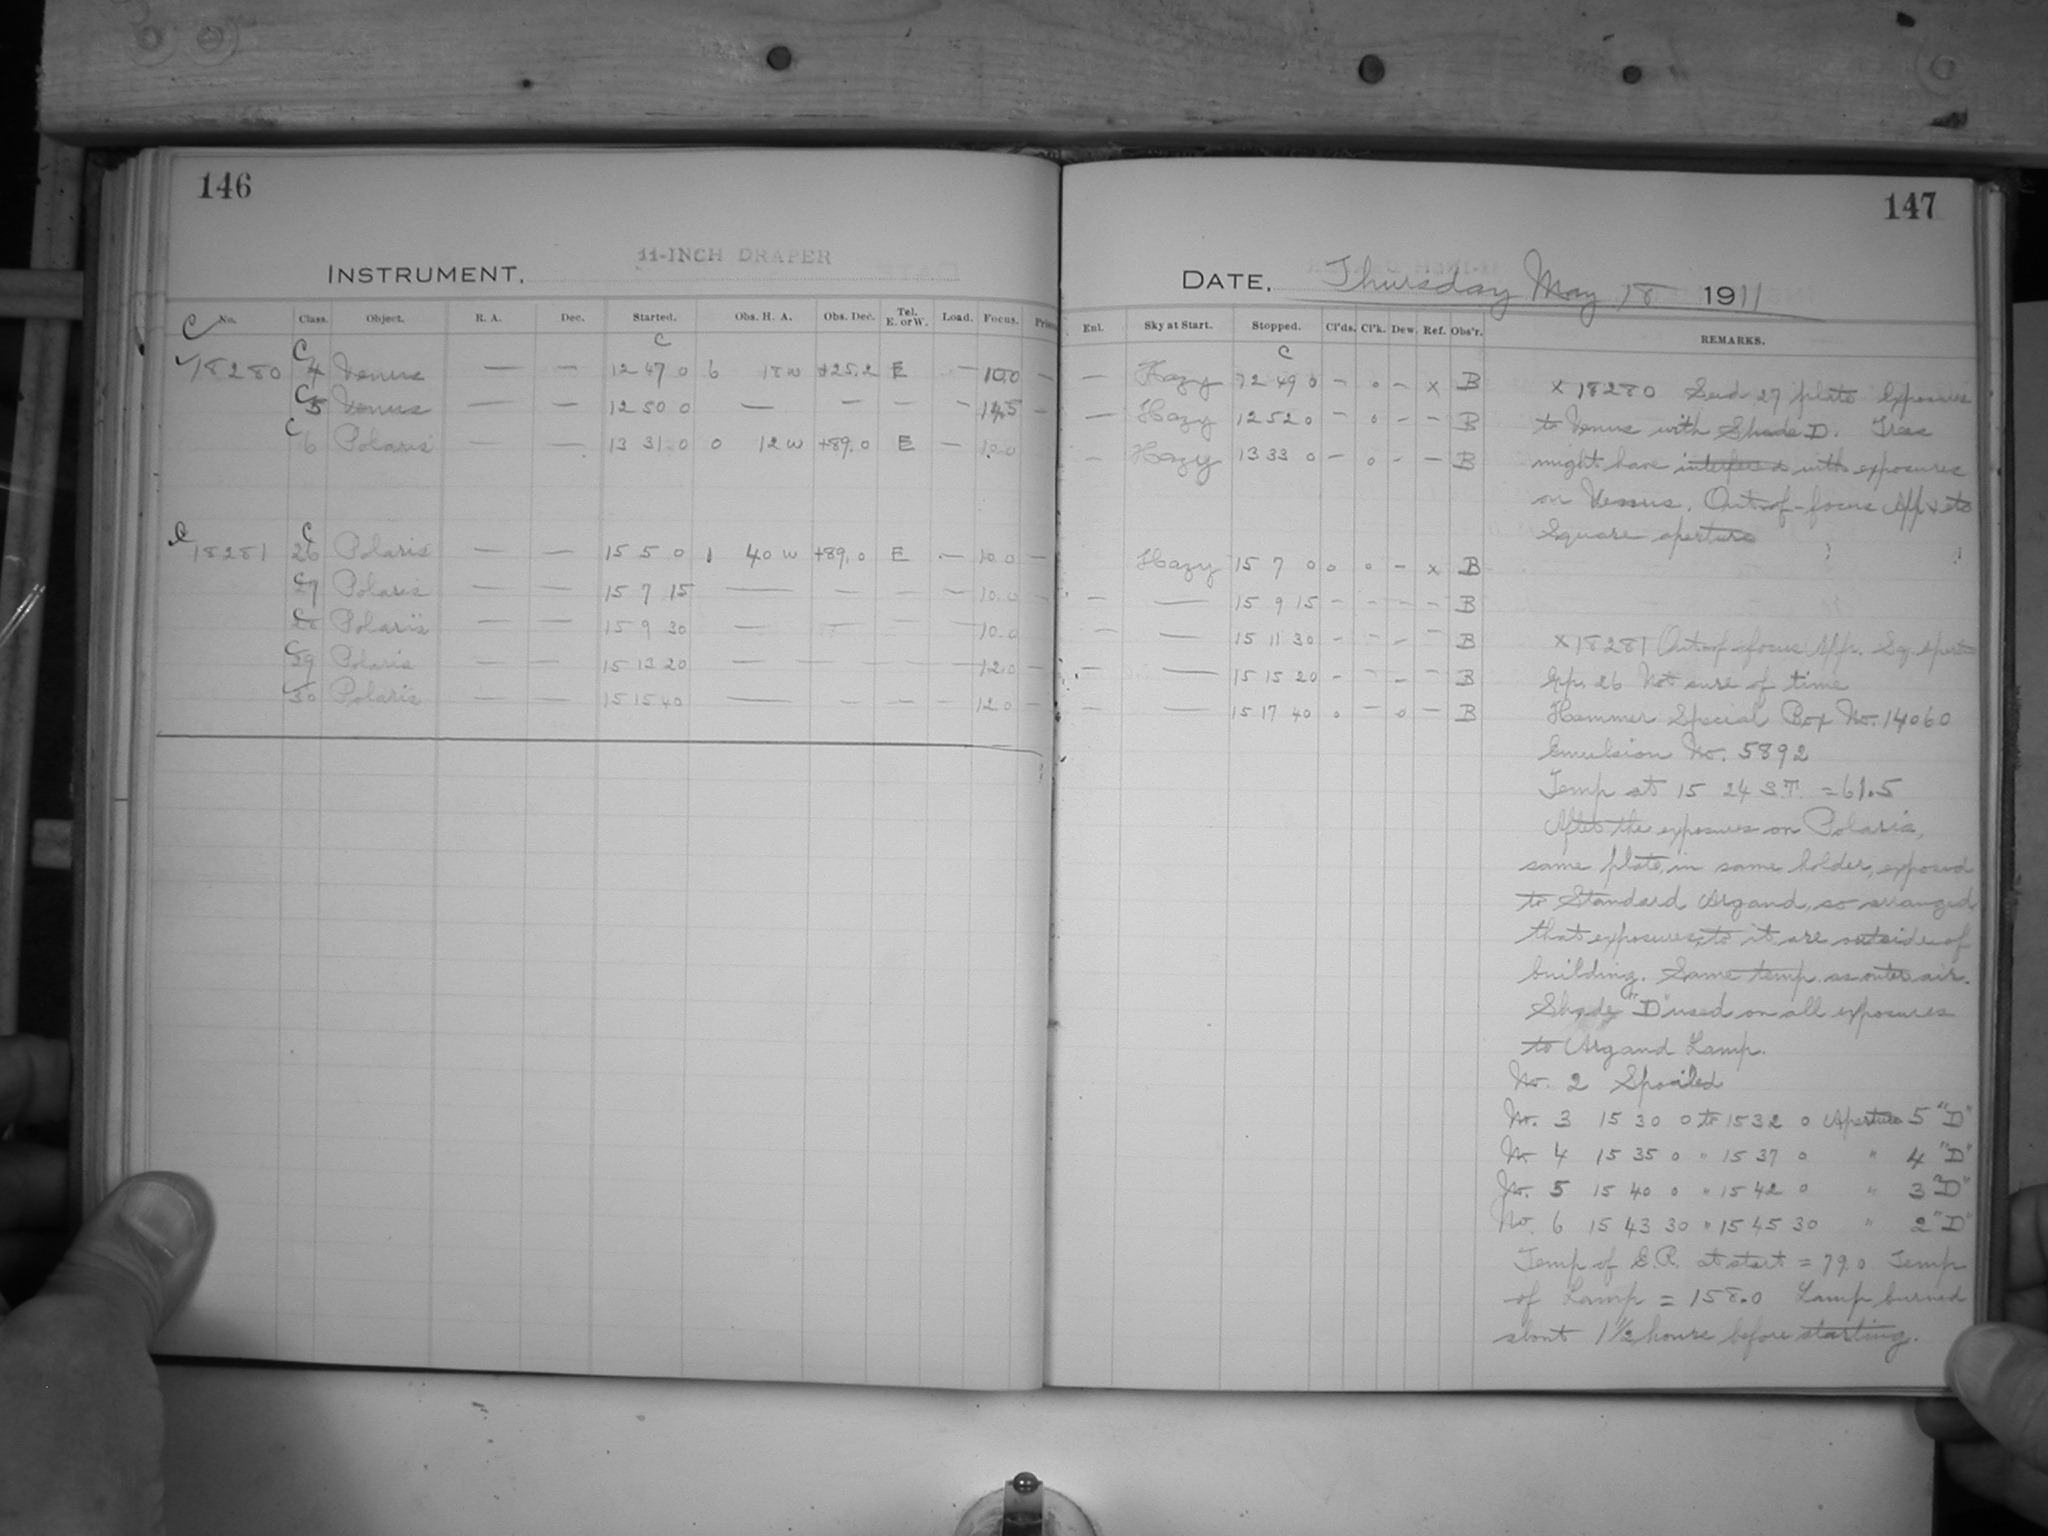 146
11-INCH DRAPER
INSTRUMENT.
No. Class. Object. R. A. Dec. Started. Obs. H. A. Obs. Dec. Tel. E. or W. Load. Focus.
C C C
18280 4 Venus — — 12 47 0 6 18 W +25.2 E — 10.0 —
C 5 Venus — — 12 50 0 — — — —
C 6 Polaris — — 13 31 0 0 12 W +89.0 E — 10.0
C C
18281 26 Polaris — — 15 5 0 1 40 W +89.0 E — 10.0 —
27 Polaris — — 15 7 15 — — — — 10.0 —
28 Polaris — — 15 9 30 — — — — 10.0
29 Polaris — — 15 13 20 — — — — 12.0 —
30 Polaris — — 15 15 40 — — — — 12.0 —
147
DATE. Thursday May 18 1911
Enl. Sky at Start. Stopped. Cl'ds. Cl'k. Dew. Ref. Obs'r. REMARKS.
C
— Hazy 12 49 0 – 0 – x B
— Hazy 12 52 0 – 0 – – B
– Hazy 13 33 0 – 0 – – B
Hazy 15 7 0 0 0 – x B
– — 15 9 15 – – – – B
– — 15 11 30 – – – – B
– — 15 15 20 – – – – B
– — 15 17 40 0 – 0 – B
x 18280 Seed 27 plate Exposures
to Venus with Shade D. Trees
might have interfered with exposures
on Venus. Out-of-focus App. etc
Square aperture
x 18281 Out-of-focus App. Sq. apert
Exp. 26 Not sure of time
Hammer Special Box No. 14060
Emulsion No. 5892
Temp at 15 24 S.T. = 61.5
After the exposures on Polaris,
same plate, in same holder, exposed
to Standard Argand, so arranged
that exposures to it are outside of
building. Same temp. as outer air.
Shade "D" used on all exposures
to Argand Lamp.
No. 2 Spoiled
No. 3 15 30 0 to 15 32 0 Aperture 5 "D"
No 4 15 35 0 " 15 37 0 " 4 "D"
No. 5 15 40 0 " 15 42 0 " 3 "D"
No. 6 15 43 30 " 15 45 30 " 2 "D"
Temp of E.R. at start = 79.0 Temp
of Lamp = 158.0 Lamp burned
about 1 1/2 hours before starting.